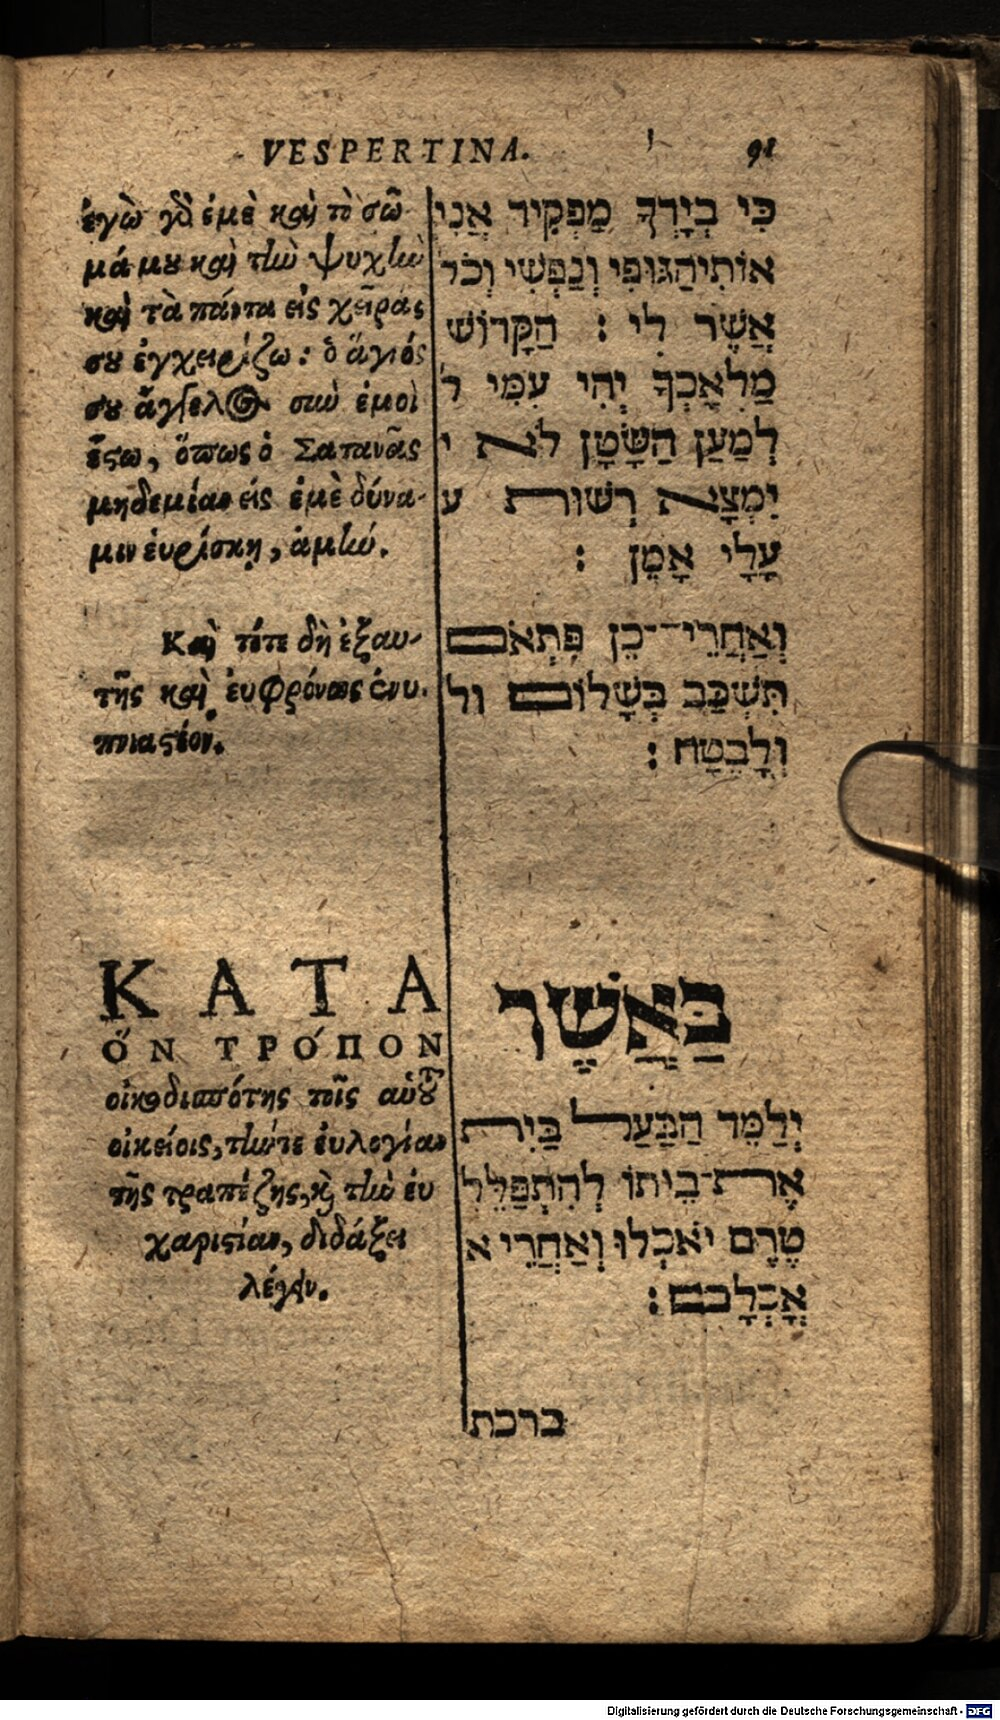 VESPERTINA. 91
ἐγὼ γὰρ ἐμὲ καὶ τὸ σῶ-
μά μου καὶ τὴν ψυχὴν
καὶ τὰ πάντα εἰς χεῖράς
σου ἐγχειρίζω: ὁ ἅγιός
σου ἄγγελος σὺν ἐμοὶ
ἔστω, ὅπως ὁ Σατανᾶς
μηδεμίαν εἰς ἐμὲ δύνα-
μιν ἑυρίσκῃ, ἀμήν.
Καὶ τότε δὴ ἐξαυ-
τῆς καὶ ἐυφρόνως ἐνυ-
πνιαστέον.
ΚΑΤΑ
ὋΝ ΤΡΌΠΟΝ
οἰκοδεσπότης τοῖς αὑτοῦ
οἰκείοις, τήν τε ἐυλογίαν
τῆς τραπέζης, καὶ τὴν ἐυ
χαριστίαν, διδάξει
λέγειν.
כִּי בְיָדְךָ מַפְקִיד אֲנִי
אוֹתִי הַגּוּפִי וְנַפְשִׁי וְכֹל
אֲשֶׁר לִי : הַקָּדוֹשׁ
מַלְאָכְךָ יְהִי עִמִּי ל
לְמַעַן הַשָּׂטָן לֹא י
יִמְצָא רְשׁוּת ע
עָלָי אָמֵן :
וְאַחֲרֵי־כֵן פִּתְאֹם
תִּשְׁכַּב בְּשָׁלוֹם ול
וְלָבֶטַח :
כַּאֲשֶׁר
יְלַמֵּד הַבַּעַל בַּיִת
אֶת־בֵיתוֹ לְהִתְפַּלֵּל
טֶרֶם יֹאכְלוּ וְאַחֲרֵי א
אָכְלָכם :
ברכת
Digitalisierung gefördert durch die Deutsche Forschungsgemeinschaft - DFG